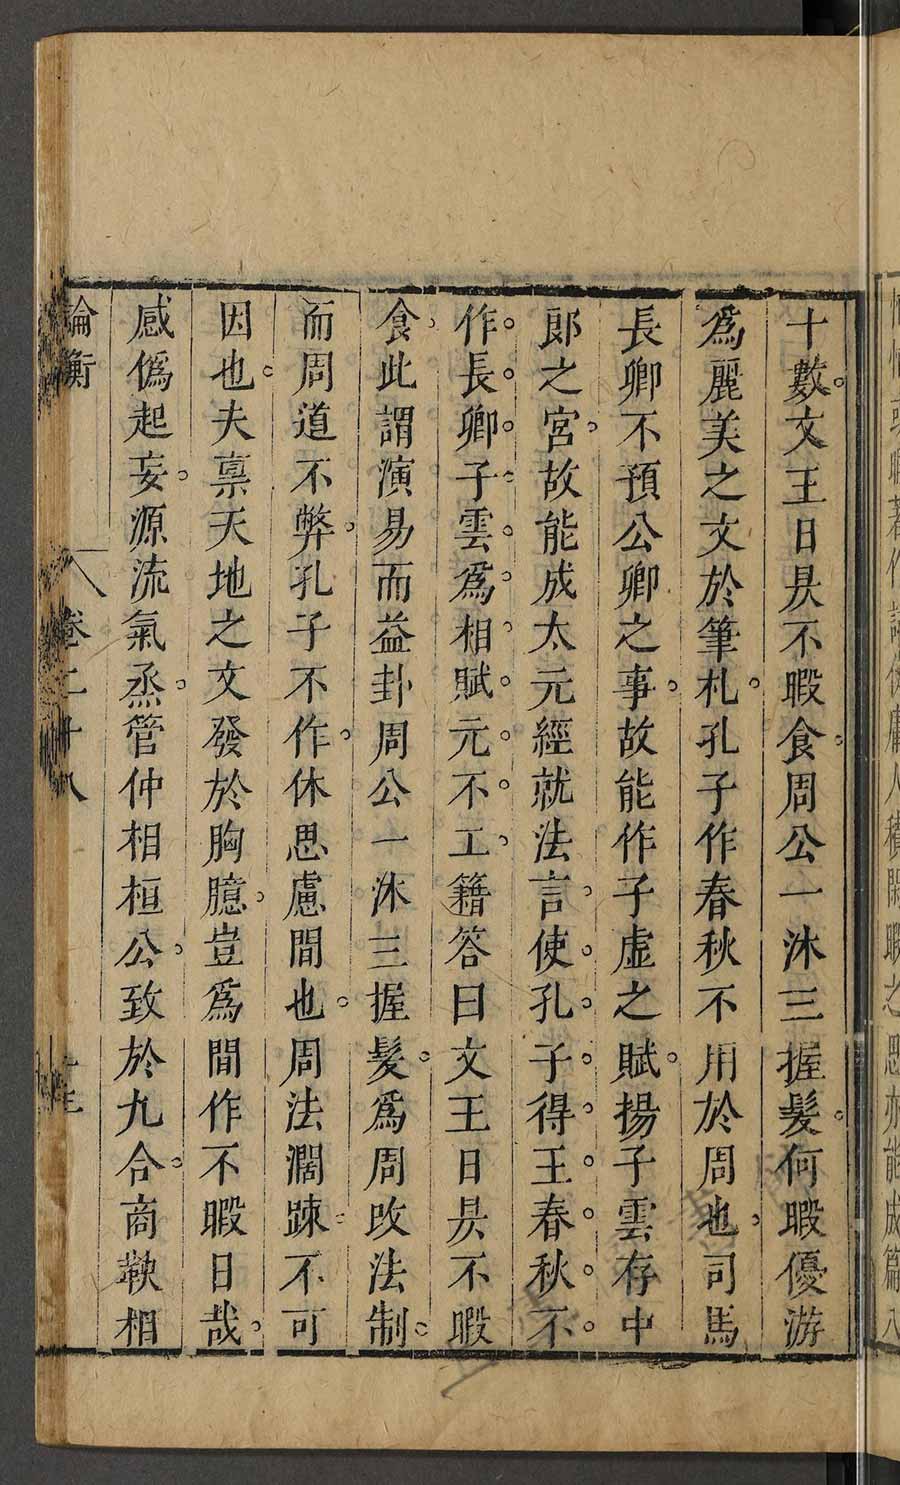 十數文王日昃不暇食周公一沐三握髮何暇優游
爲麗美之文於筆札孔子作春秋不用於周也司馬
長卿不預公卿之事故能作子虛之賦揚子雲存中
郎之宮故能成太元經就法言使孔子得王春秋不
作長卿子雲爲相賦元不工籍答曰文王日昃不暇
食此謂演易而益卦周公一沐三握髮爲周改法制
而周道不弊孔子不作休思慮間也周法濶踈不可
因也夫稟天地之文發於胸臆豈爲間作不暇日哉
感僞起妄源流氣烝管仲相桓公致於九合商鞅相
論衡
卷二十八